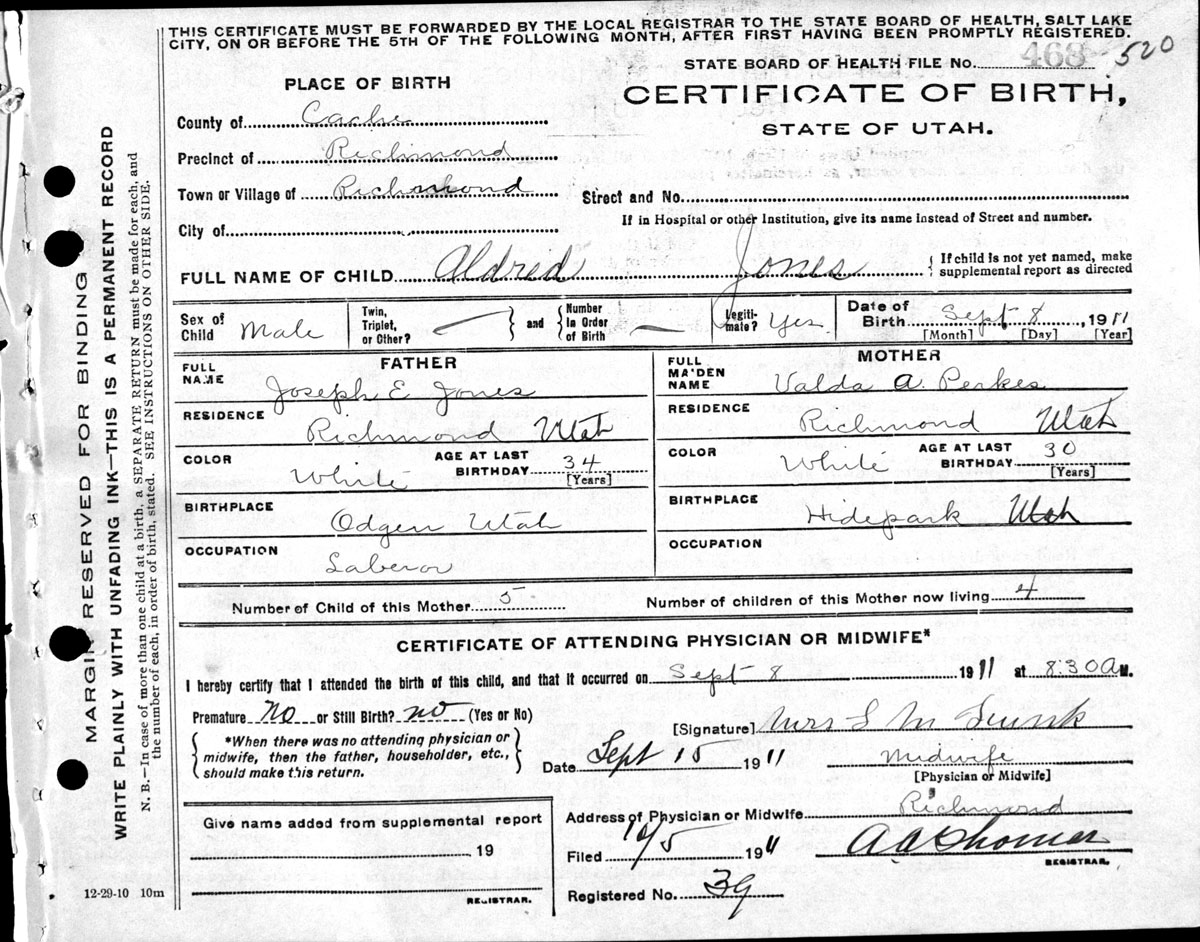 THIS CERTIFICATE MUST BE FORWARDED BY THE LOCAL REGISTRAR TO THE STATE BOARD OF HEALTH, SALT LAKE
CITY, ON OR BEFORE THE 5TH OF THE FOLLOWING MONTH, AFTER FIRST HAVING BEEN PROMPTLY REGISTERED.
STATE BOARD OF HEALTH FILE No. 468 520
PLACE OF BIRTH
CERTIFICATE OF BIRTH,
STATE OF UTAH.
County of Cache
Precinct of Richmond
Town or Village of Richmond
Street and No.
If in Hospital or other Institution, give its name instead of Street and number.
City of
FULL NAME OF CHILD Aldred Jones { If child is not yet named, make
supplemental report as directed
Sex of Child Male
Twin, Triplet, or Other? — } and { Number in Order of Birth —
Legitimate? Yes
Date of Birth Sept 8, 1911
[Month] [Day] [Year]
FATHER
FULL NAME Joseph E Jones
RESIDENCE Richmond Utah
COLOR White AGE AT LAST BIRTHDAY 34 [Years]
BIRTHPLACE Odgen Utah
OCCUPATION Laberor
MOTHER
FULL MA'DEN NAME Valda A. Perkes
RESIDENCE Richmond Utah
COLOR White AGE AT LAST BIRTHDAY 30 (Years)
BIRTHPLACE Hidepark Utah
OCCUPATION
Number of Child of this Mother 5 Number of children of this Mother now living 4
CERTIFICATE OF ATTENDING PHYSICIAN OR MIDWIFE*
I hereby certify that I attended the birth of this child, and that it occurred on Sept 8 1911 at 8:30 A M.
Premature no or Still Birth? no (Yes or No)
{ *When there was no attending physician or
midwife, then the father, householder, etc.,
should make this return. }
[Signature] Mrs L M
Date Sept 15 1911 Midwife
[Physician or Midwife]
Address of Physician or Midwife Richmond
Filed 10/5 1911 A A Thomas
REGISTRAR.
Registered No. 39
Give name added from supplemental report
19
REGISTRAR.
12-29-10 10m
MARGIN RESERVED FOR BINDING
WRITE PLAINLY WITH UNFADING INK—THIS IS A PERMANENT RECORD
N. B.—In case of more than one child at a birth, a SEPARATE RETURN must be made for each, and
the number of each, in order of birth, stated. SEE INSTRUCTIONS ON OTHER SIDE.